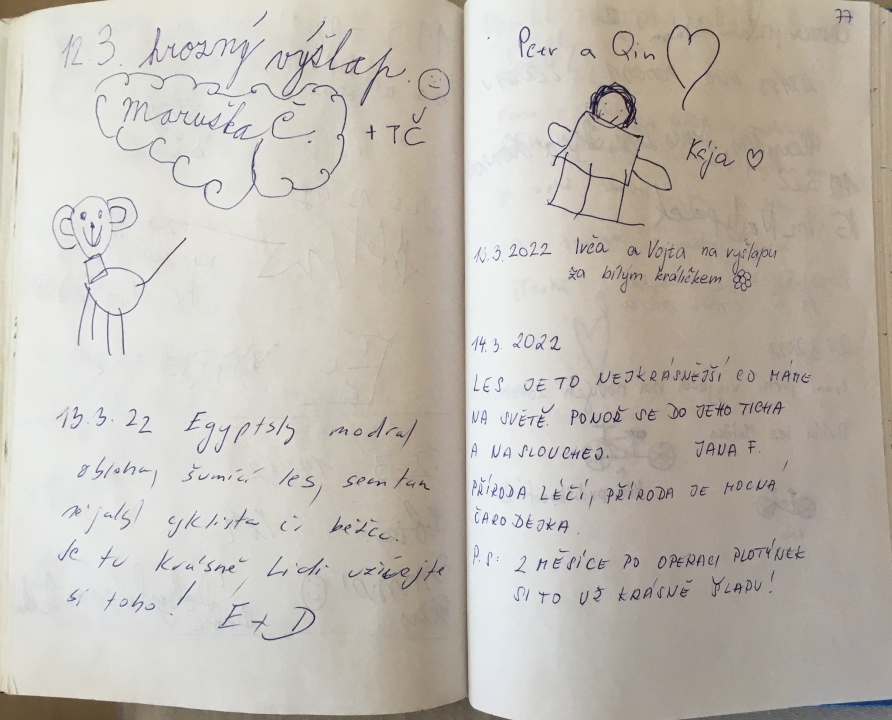 12.3. hrozný výšlap.
Maruška Č.
+ TČ
13.3.22 Egyptsky modrá
obloha, šumící les, sem tam
nějaký cyklista či běžec.
Je tu krásně, Lidi užívejte
si toho!
E+D
77
Petr a Qin
Kája
13.3.2022 Irča a Vojta na vyšlapu
za bílým králíčkem
14.3.2022
LES JE TO NEJKRÁSNĚJŠÍ CO MÁME
NA SVĚTĚ. PONOŘ SE DO JEHO TICHA
A NASLOUCHEJ. JANA F.
PŘÍRODA LÉČÍ, PŘÍRODA JE MOCNÁ
ČARODEJKA.
P.S: 2 MĚSÍCE PO OPERACI PLOTÝNEK
SI TO UŽ KRÁSNĚ ŠLAPU!